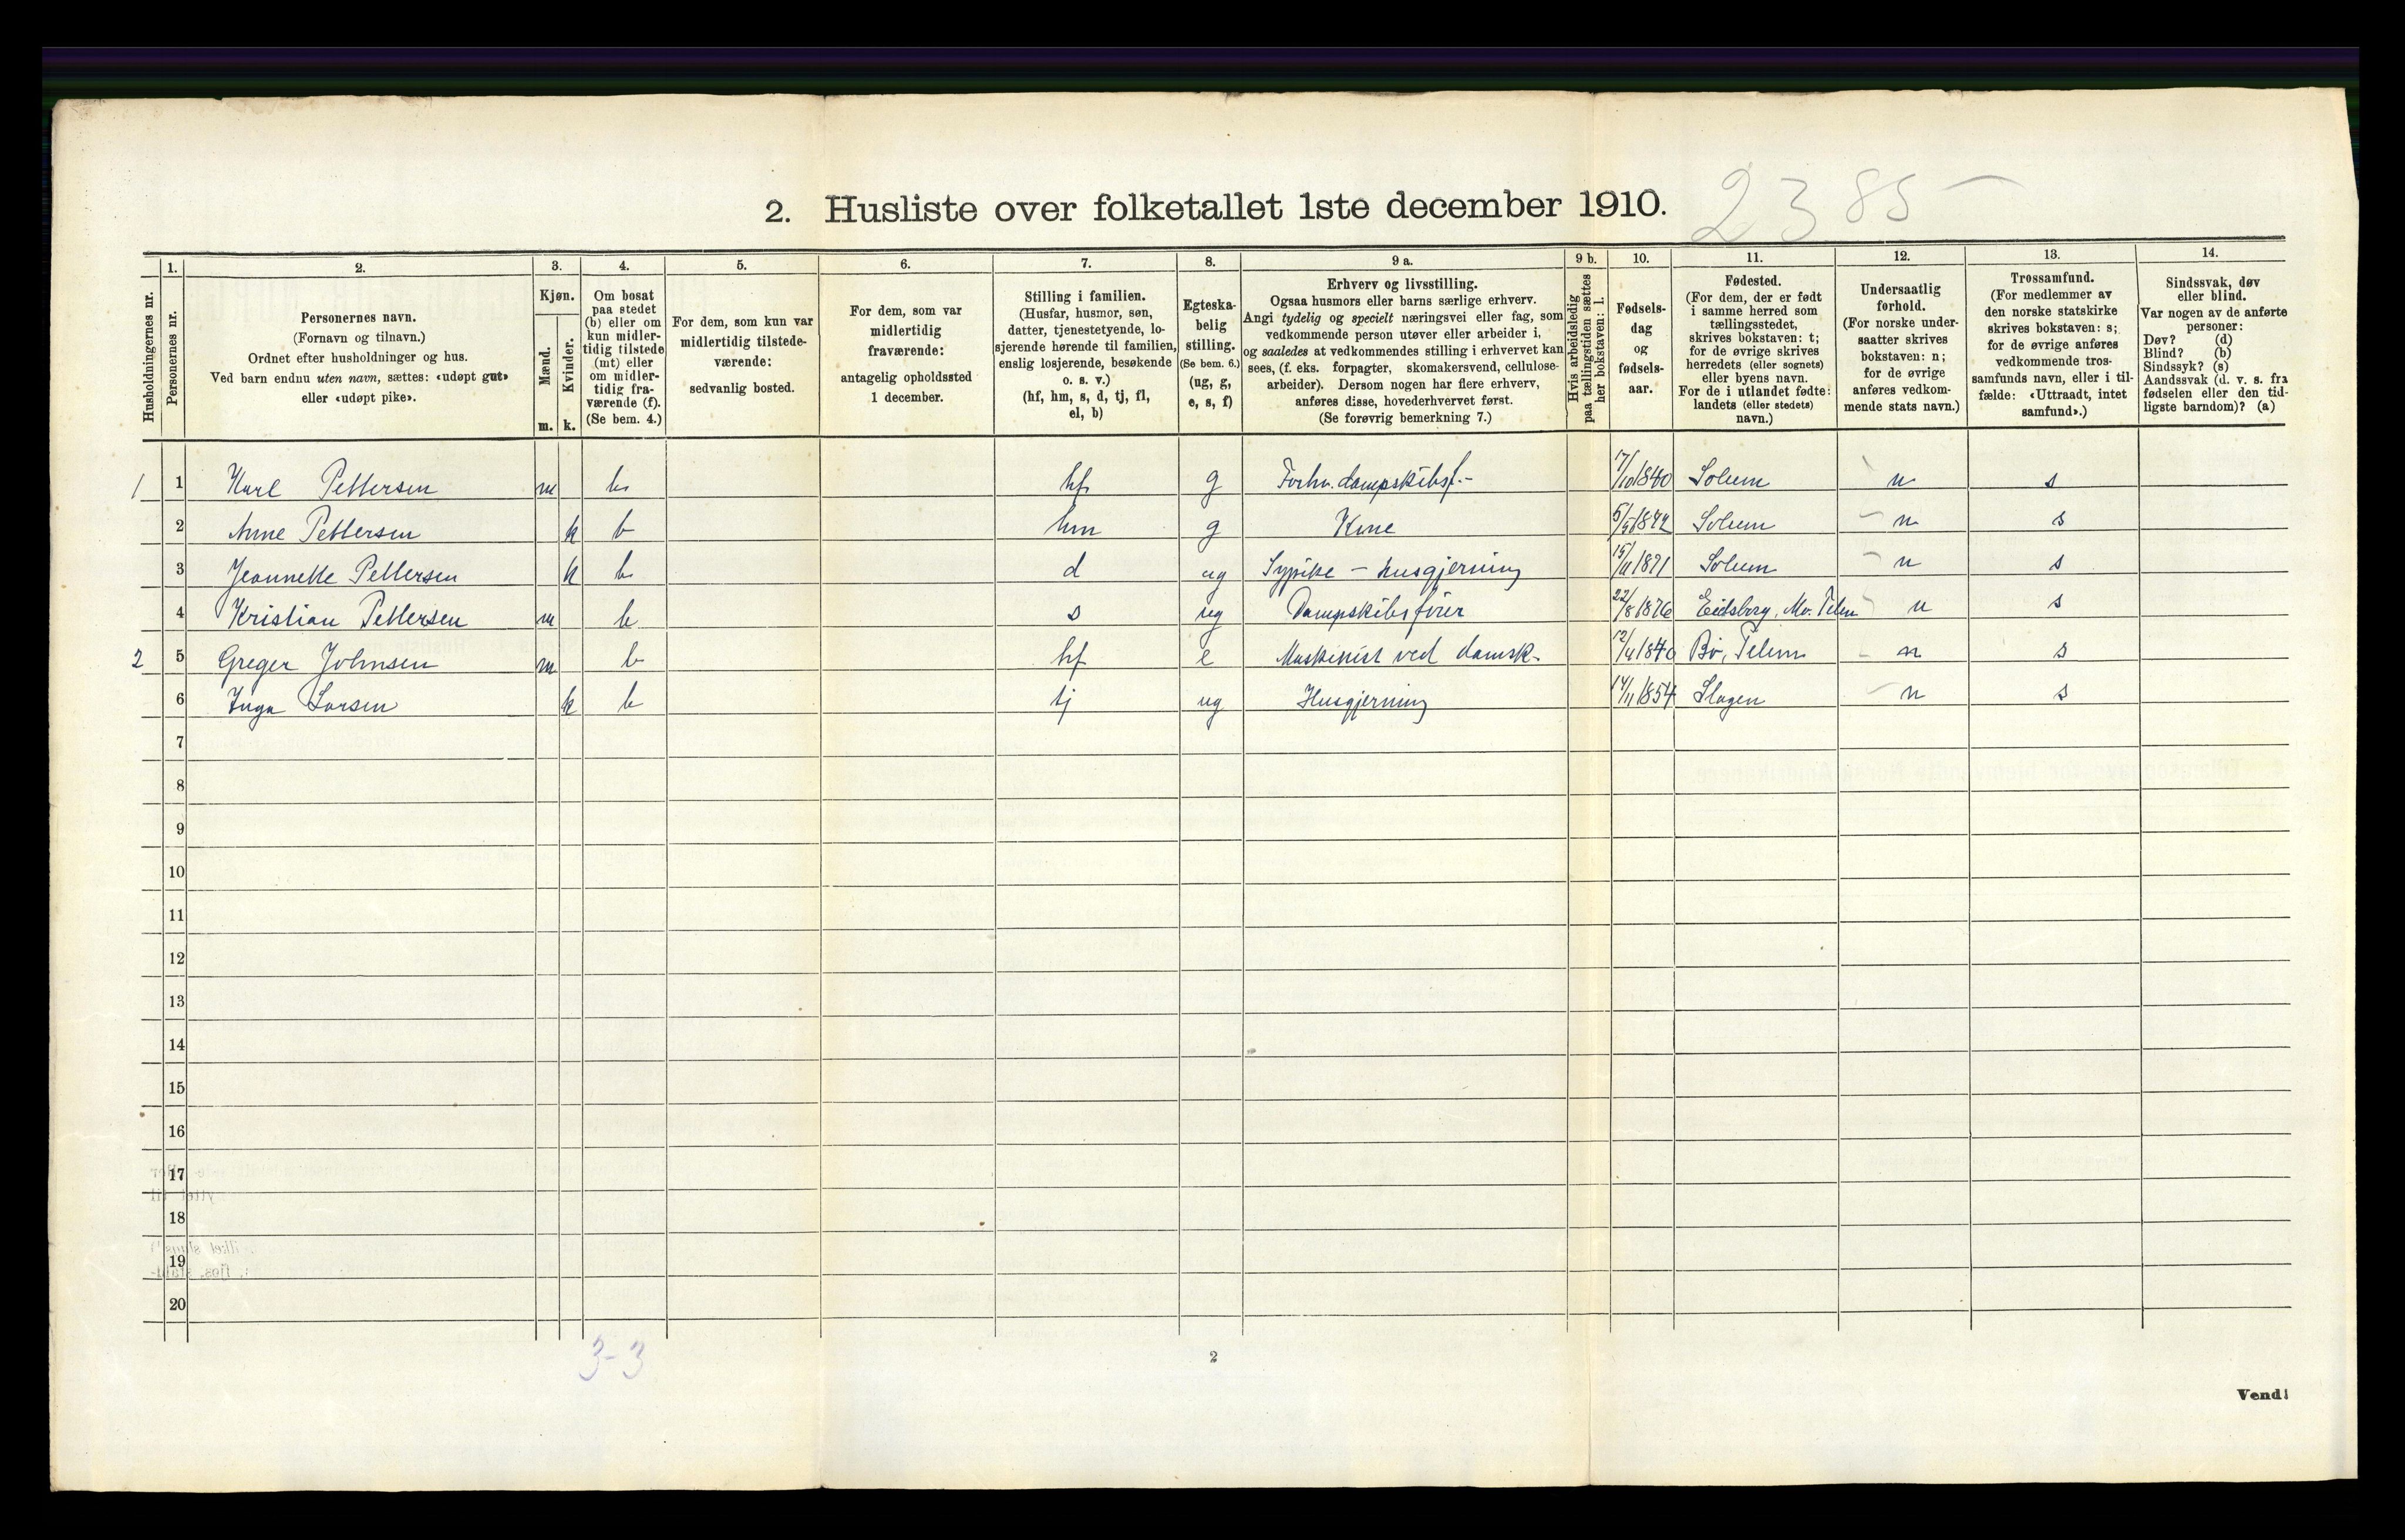 2. Husliste over folketallet 1ste december 1910. 2385
Husholdningernes nr.
1. Personernes nr.
2.
Personernes navn.
(Fornavn og tilnavn.)
Ordnet efter husholdninger og hus.
Ved barn endnu uten navn, sættes: «udøpt gut»
eller «udøpt pike».
3.
Kjøn.
Mænd. Kvinder.
m. k.
4.
Om bosat
paa stedet
(b) eller om
kun midler-
tidig tilstede
(mt) eller
om midler-
tidig fra-
værende (f).
(Se bem. 4.)
5.
For dem, som kun var
midlertidig tilstede-
værende:
sedvanlig bosted.
6.
For dem, som var
midlertidig
fraværende:
antagelig opholdssted
1 december.
7.
Stilling i familien.
(Husfar, husmor, søn,
datter, tjenestetyende, lo-
sjerende hørende til familien,
enslig losjerende, besøkende
o. s. v.)
(hf, hm, s, d, tj, fl,
el, b)
8.
Egteska-
belig
stilling.
(Se bem. 6.)
(ug, g,
e, s, f)
9 a.
Erhverv og livsstilling.
Ogsaa husmors eller barns særlige erhverv.
Angi tydelig og specielt næringsvei eller fag, som
vedkommende person utøver eller arbeider i,
og saaledes at vedkommendes stilling i erhvervet kan
sees, (f. eks. forpagter, skomakersvend, cellulose-
arbeider). Dersom nogen har flere erhverv,
anføres disse, hovederhvervet først.
(Se forøvrig bemerkning 7.)
9 b.
Hvis arbeidsledig
paa tællingstiden sættes
her bokstaven: l.
10.
Fødsels-
dag
og
fødsels-
aar.
11.
Fødested.
(For dem, der er født
i samme herred som
tællingsstedet,
skrives bokstaven: t;
for de øvrige skrives
herredets (eller sognets)
eller byens navn.
For de i utlandet fødte:
landets (eller stedets)
navn.)
12.
Undersaatlig
forhold.
(For norske under-
saatter skrives
bokstaven: n;
for de øvrige
anføres vedkom-
mende stats navn.)
13.
Trossamfund.
(For medlemmer av
den norske statskirke
skrives bokstaven: s;
for de øvrige anføres
vedkommende tros-
samfunds navn, eller i til-
fælde: «Uttraadt, intet
samfund».)
14.
Sindssvak, døv
eller blind.
Var nogen av de anførte
personer:
Døv? (d)
Blind? (b)
Sindssyk? (s)
Aandssvak (d. v. s. fra
fødselen eller den tid-
ligste barndom)? (a)
1 1 Karl Pettersen m b hf g Forhv. dampskibsf.- 17/10 1840 Solum n s
2 Anne Pettersen k b hm g Kone Solum n s
3 Jeannette Pettersen k b d ug Sypike - husgjerning 15/11 1871 Solum n s
4 Kristian Pettersen m b s ug Dampskibsfører 22/8 1876 Eidsborg, Mo. Telem n s
2 5 Greger Johnsen m b hf e Maskinist ved damsk. 12/4 1840 Bø, Telem n s
6 Inga Larsen k b tj ug Husgjerning 14/11 1854 Slagen n s
7
8
9
10
11
12
13
14
15
16
17
18
19
20
3-3
2
Vend!